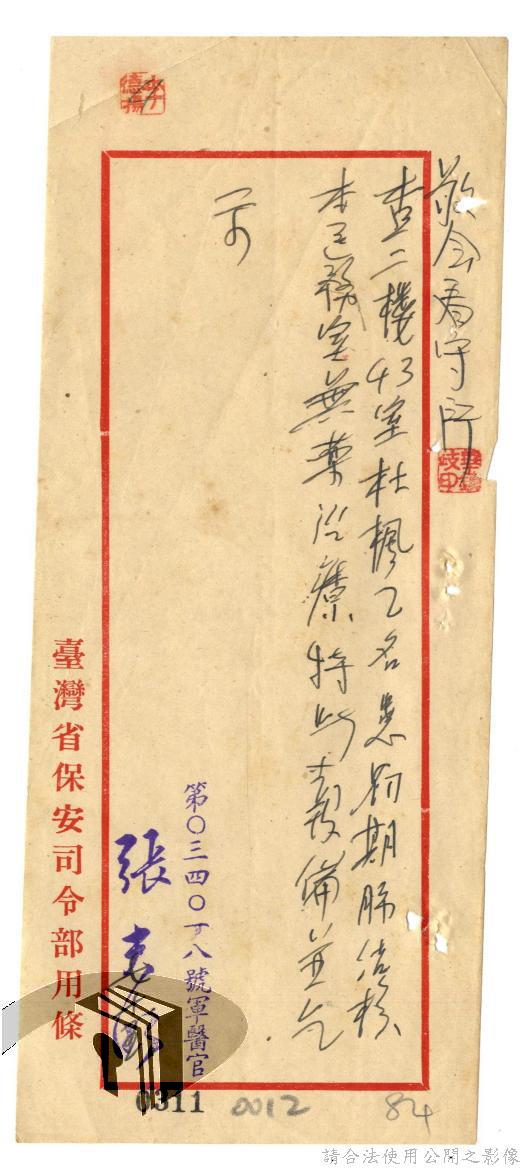 敬会看守所
查二樓43室杜楓乙名患初期肺结核
本医務室無藥治療特此報備並乞
示
第〇三四〇八號軍醫官
張
臺灣省保安司令部用條
0311 0012 84
請合法使用公開之影像